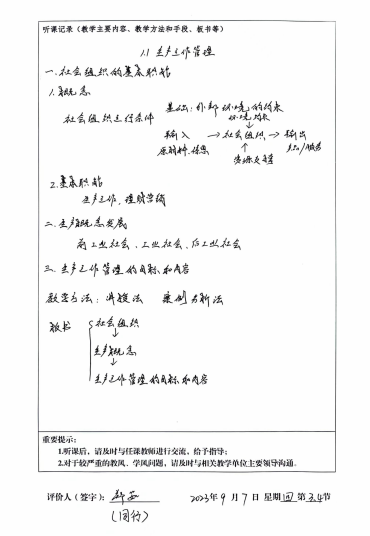 听课记录（教学主要内容、教学方法和手段、板书等）
1.1 生产运作管理
一. 社会组织的基本职能
1. 概念
基础: 外部环境的约束
社会组织运行条件
环境约束
↓
输入 → 社会组织 → 输出
原材料、信息 ↑ 产品/服务
2. 基本职能
生产运作、理财、营销
二. 生产概念发展
前工业社会、工业社会、后工业社会
三. 生产运作管理的目标和内容
教学方法: 讲授法 案例分析法
板书
社会组织
↓
生产概念
↓
生产运作管理的目标和内容
重要提示：
1.听课后，请及时与任课教师进行交流，给予指导；
2.对于较严重的教风、学风问题，请及时与相关教学单位主要领导沟通。
评价人（签字）：
2023年9月7日 星期四 第3.4节
(同行)